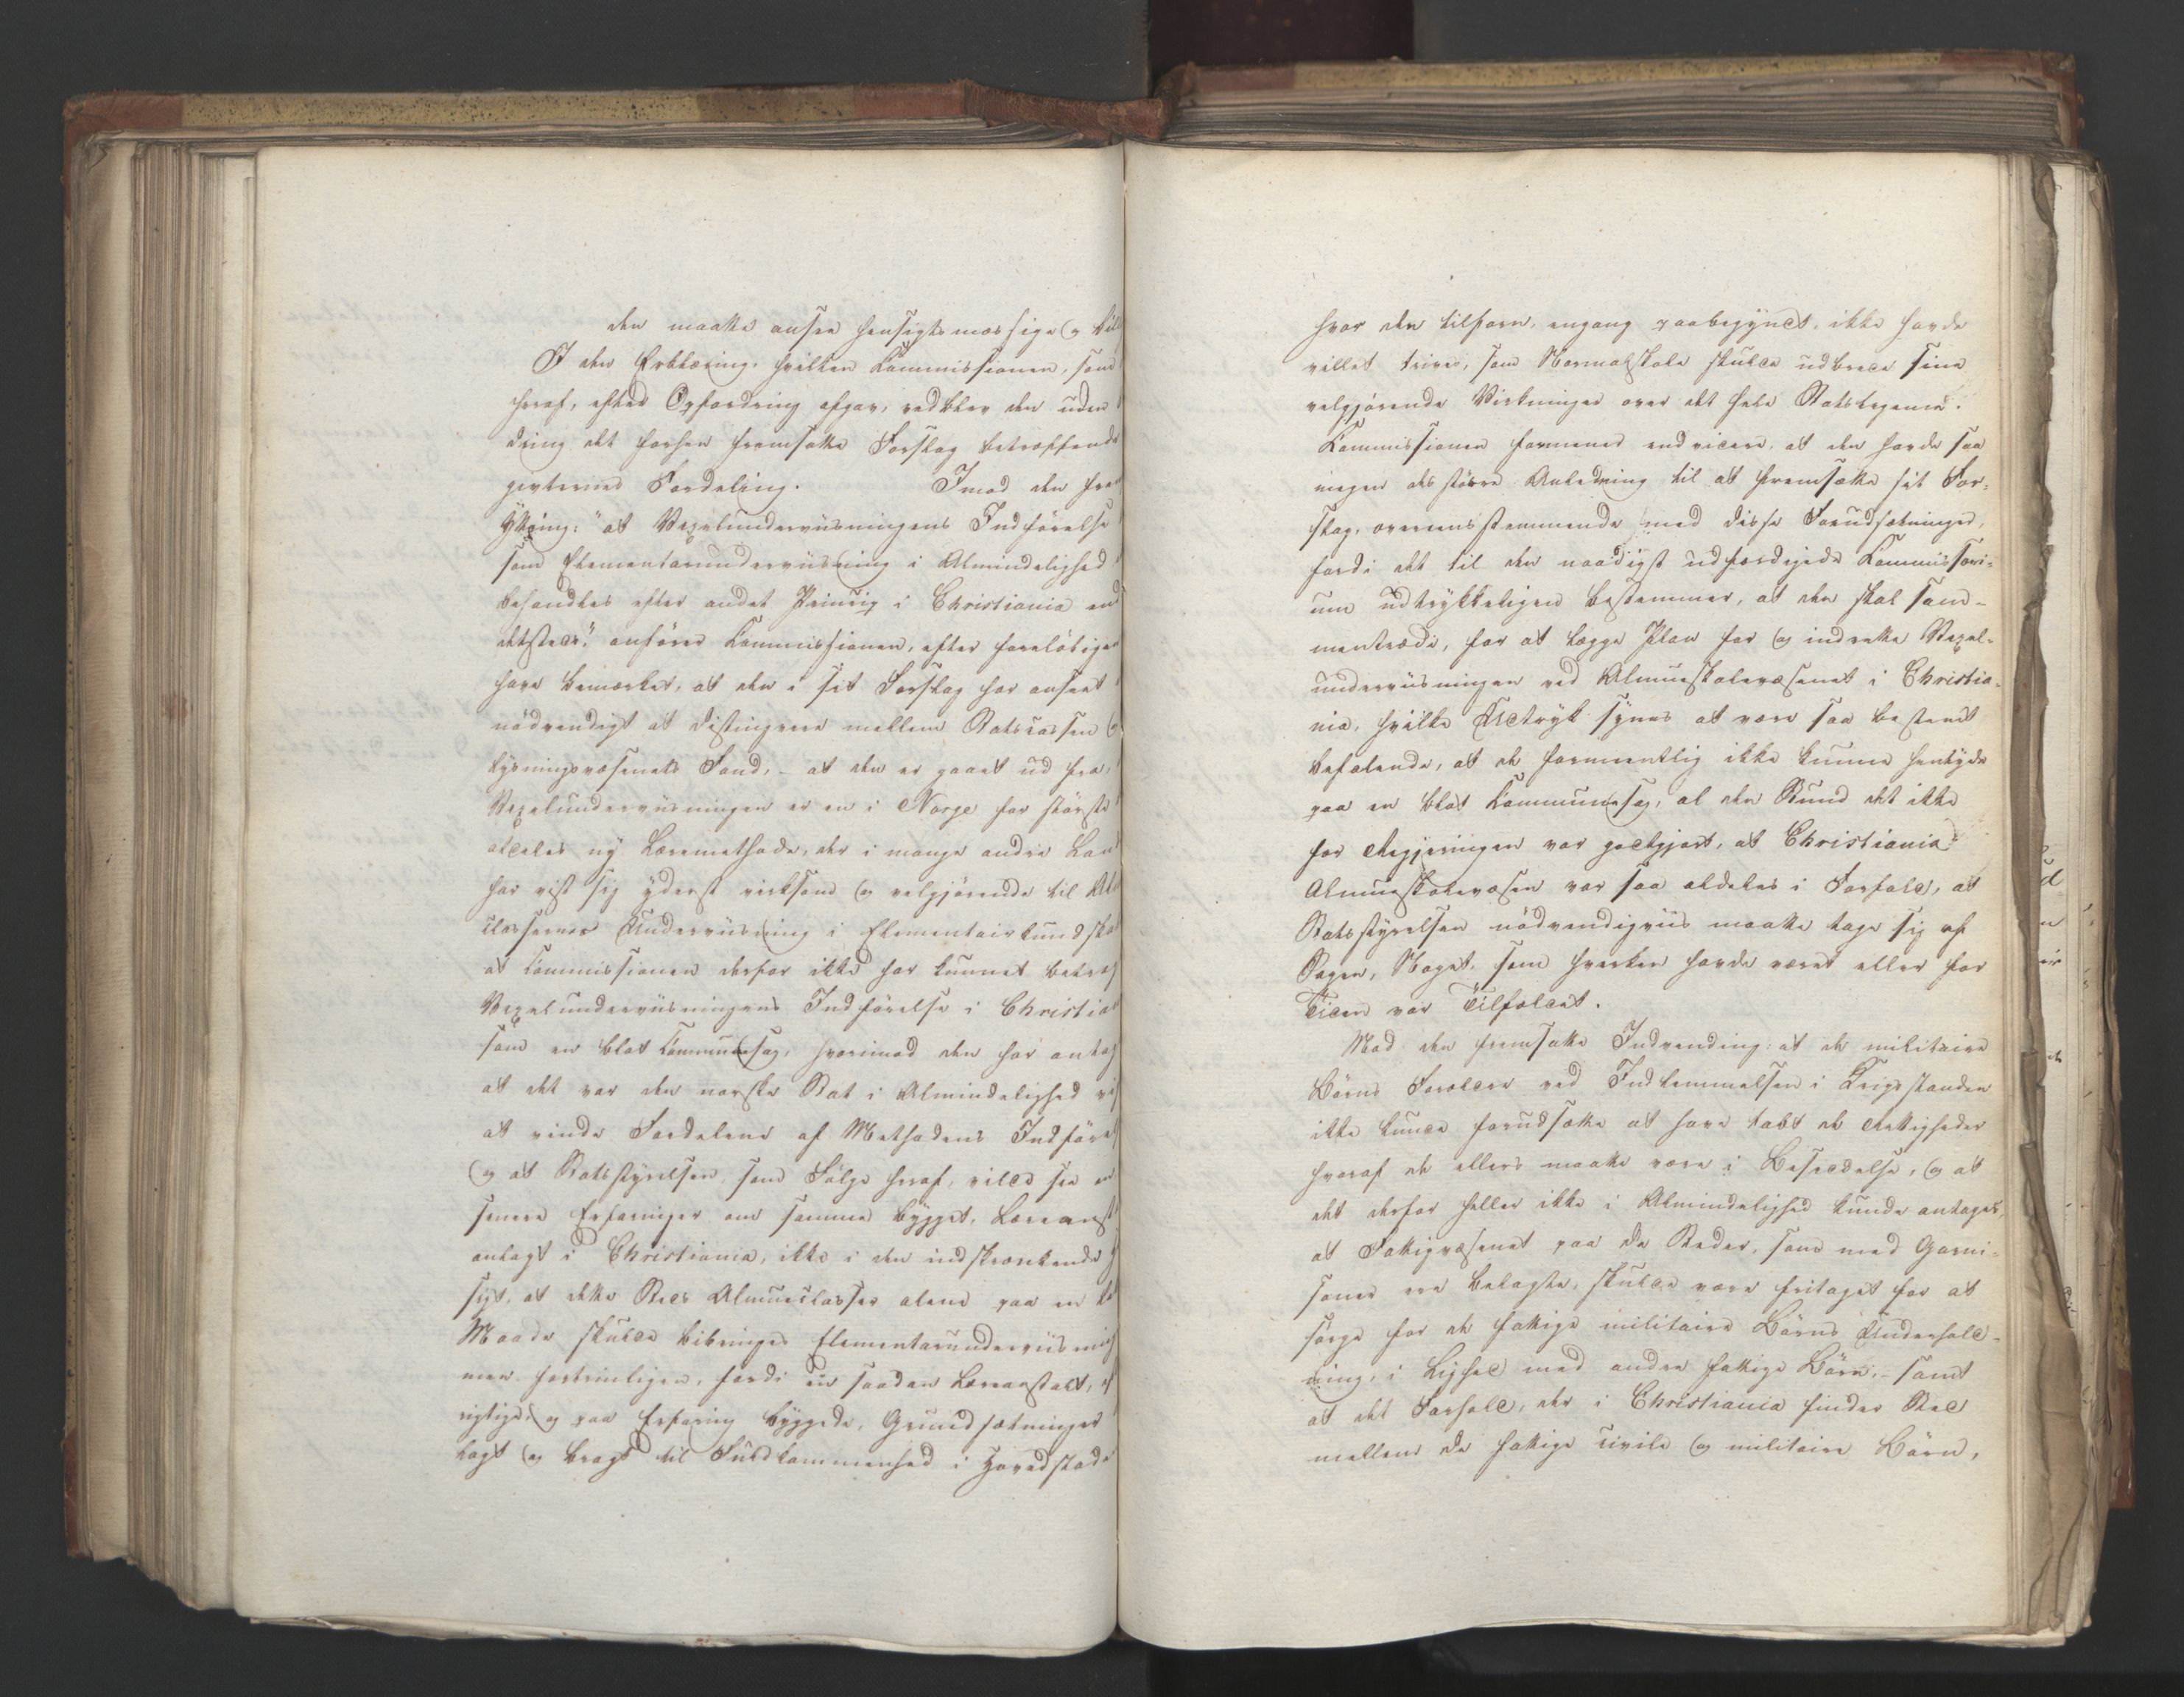 den maatte ansee hensigtsmæssige og bill
I den Erklæring, hvilken Commissionen, som
heraf, efter Opfordring afgav, vedblev den uden
dring det forhen fremsatte Forslag betræffende
gifternes Fordeling. Imod den frem
Yttring: "at Vexelunderviisningens Indførelse
som Elementarunderviisning i Almindelighed
behandles efter andet Princip i Christiania end
detsteds", anfører Commissionen, efter foreløbigen
have bemærket, at den i sit Forslag har anseet
nødvendigt at distingvere mellem Statscassen og
lysningsvæsenets Fond, - at den er gaaet ud fra,
Vexelunderviisningen er en i Norge for største
aldeles ny Læremethode, der i mange andre Lan
har viist sig yderst virksom og velgjørende til Al
classernes Underviisning i Elementairkundska
at Commissionen derfor ikke har kunnet betrag
Vexelunderviisningens Indførelse i Christia
som en blot Communesag, hvorimod den har antag
at det var den norske Stat i Almindelighed vig
at vinde Fordelene af Methodens Indførel
og at Statsstyrelsen, som Følge heraf, vilde see en
senere Erfaringer om samme bygget, Læreanst
anlagt i Christiania, ikke i den indskrænkende H
sigt, at dette Steds Almueclasser alene paa en be
Maade skulde bibringes Elementarunderviisning
men fortrinligen, fordi en saadan Læreanstalt, ef
rigtige, og paa Erfaring byggede, Grundsætninger
lagt og bragt til Fuldkommenhed i Hovedstade
hvor den tilforn, engang paabegyndt, ikke havde
villet trives, som Normalskole skulde udbrede sine
velgjørende Virkninger over det hele Statslegeme.
Commissionen formener endvidere, at den havde saa
meget des større Anledning til at fremsætte sit For-
slag, overeensstemmende med disse Forudsætninger,
fordi det til den naadigst udfærdigede Commissori-
um udtrykkeligen bestemmer, at den skal sam-
mentræde, for at lægge Plan for og indrette Vexel-
underviisningen ved Almueskolevæsenet i Christia-
nia, hvilke Udtryk synes at være saa bestemt
befalende, at de formeentlig ikke kunne hentyde
paa en blot Communesag, al den Stund det ikke
for Regjeringen var godtgjort, at Christiania
Almueskolevæsen var saa aldeles i Forfald, at
Statsstyrelsen nødvendigviis maatte tage sig af
Sagen, Noget, som hverken havde været eller for
Tiden var Tilfældet.
Mod den fremsatte Indvending: at de militaire
Børns Forældre ved Indlemmelsen i Krigsstanden
ikke kunde forudsætte at have tabt de Rettigheder
hvoraf de ellers maatte være i Besiddelse, og at
det derfor heller ikke i Almindelighed kunde antages,
at Fattigvæsenet paa de Steder, som med Garni-
soner ere belagte, skulde være fritaget for at
sørge for de fattige militaire Børns Underhold-
ning, i Lighed med andre fattige Børn, - samt
at det Forhold, der i Christiania finder Sted
mellem de fattige civile og militaire Børn,